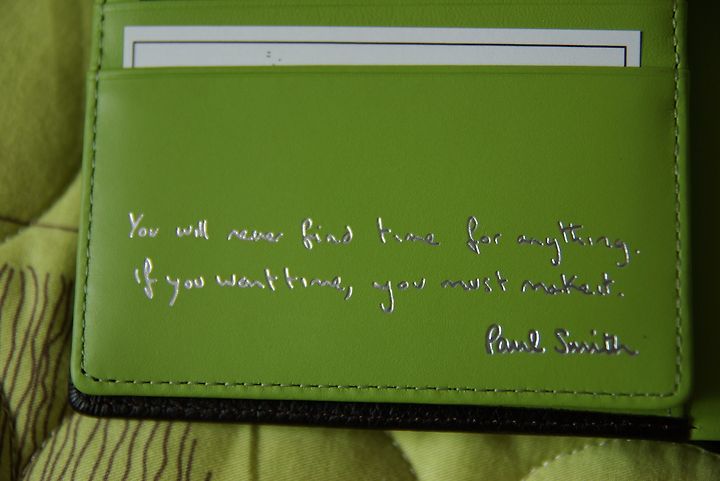 You will never find time for anything.
If you want time, you must make it.
Paul Smith